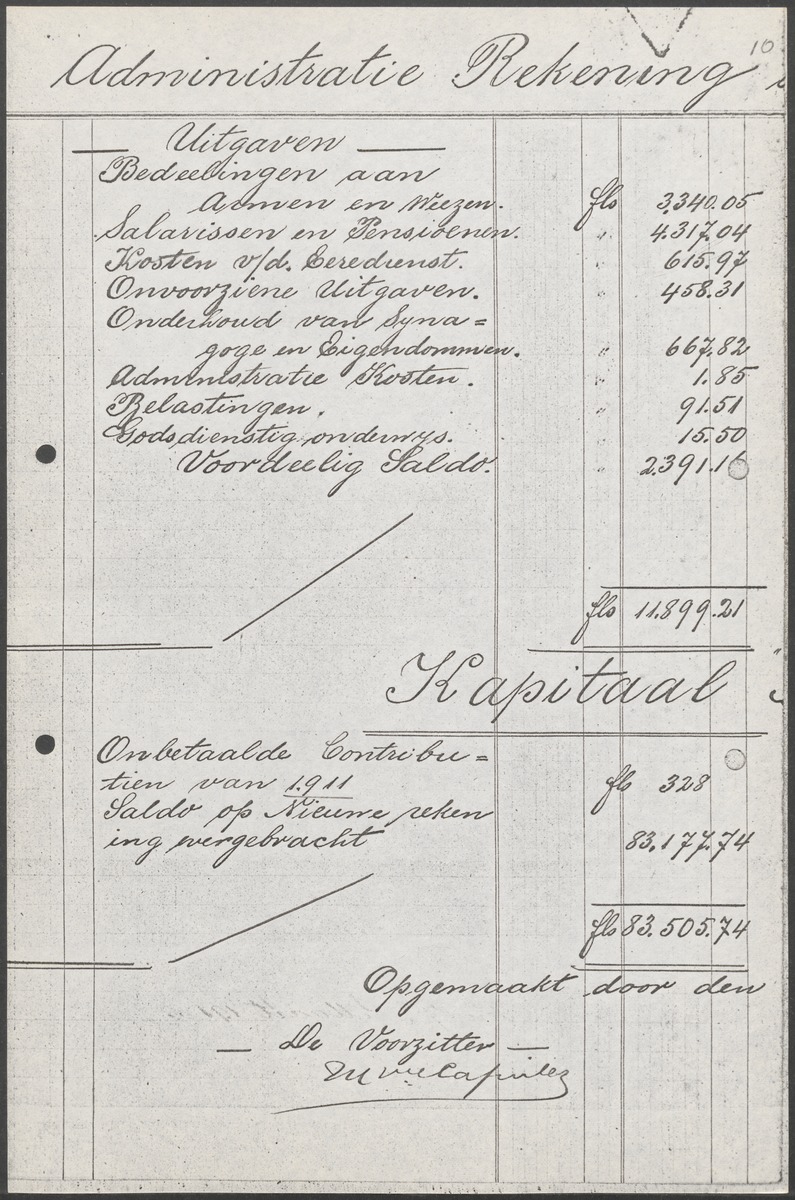 10
Administratie Rekening
Uitgaven
Bedeelingen aan
Armen en Weezen. fls 3.340.05
Salarissen en Pensioenen. " 4.317.04
Kosten v/d. Eeredienst. " 615.97
Onvoorziene Uitgaven. " 458.31
Onderhoud van Syna=
goge en Eigendommen. " 667.82
Administratie Kosten. " 1.85
Belastingen. " 91.51
Godsdienstig onderwys. " 15.50
Voordeelig Saldo. " 2.391.16
fls 11.899.21
Kapitaal
Onbetaalde Contribu=
tien van 1911 fls 328
Saldo op Nieuwe reken
ing overgebracht 83.177.74
fls 83.505.74
Opgemaakt door den
De Voorzitter